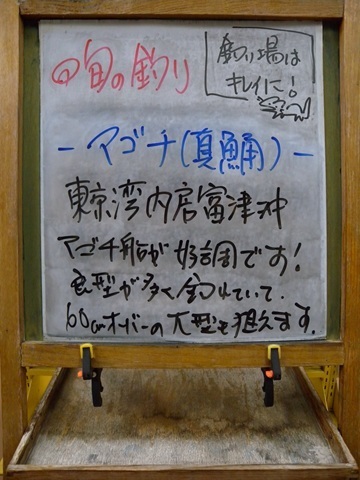 旬の釣り
釣り場は
キレイに!
-マゴチ(真鯒)-
東京湾内房富津沖
マゴチ船が好調です!
良型が多く釣れていて、
60cmオーバーの大型も狙えます。